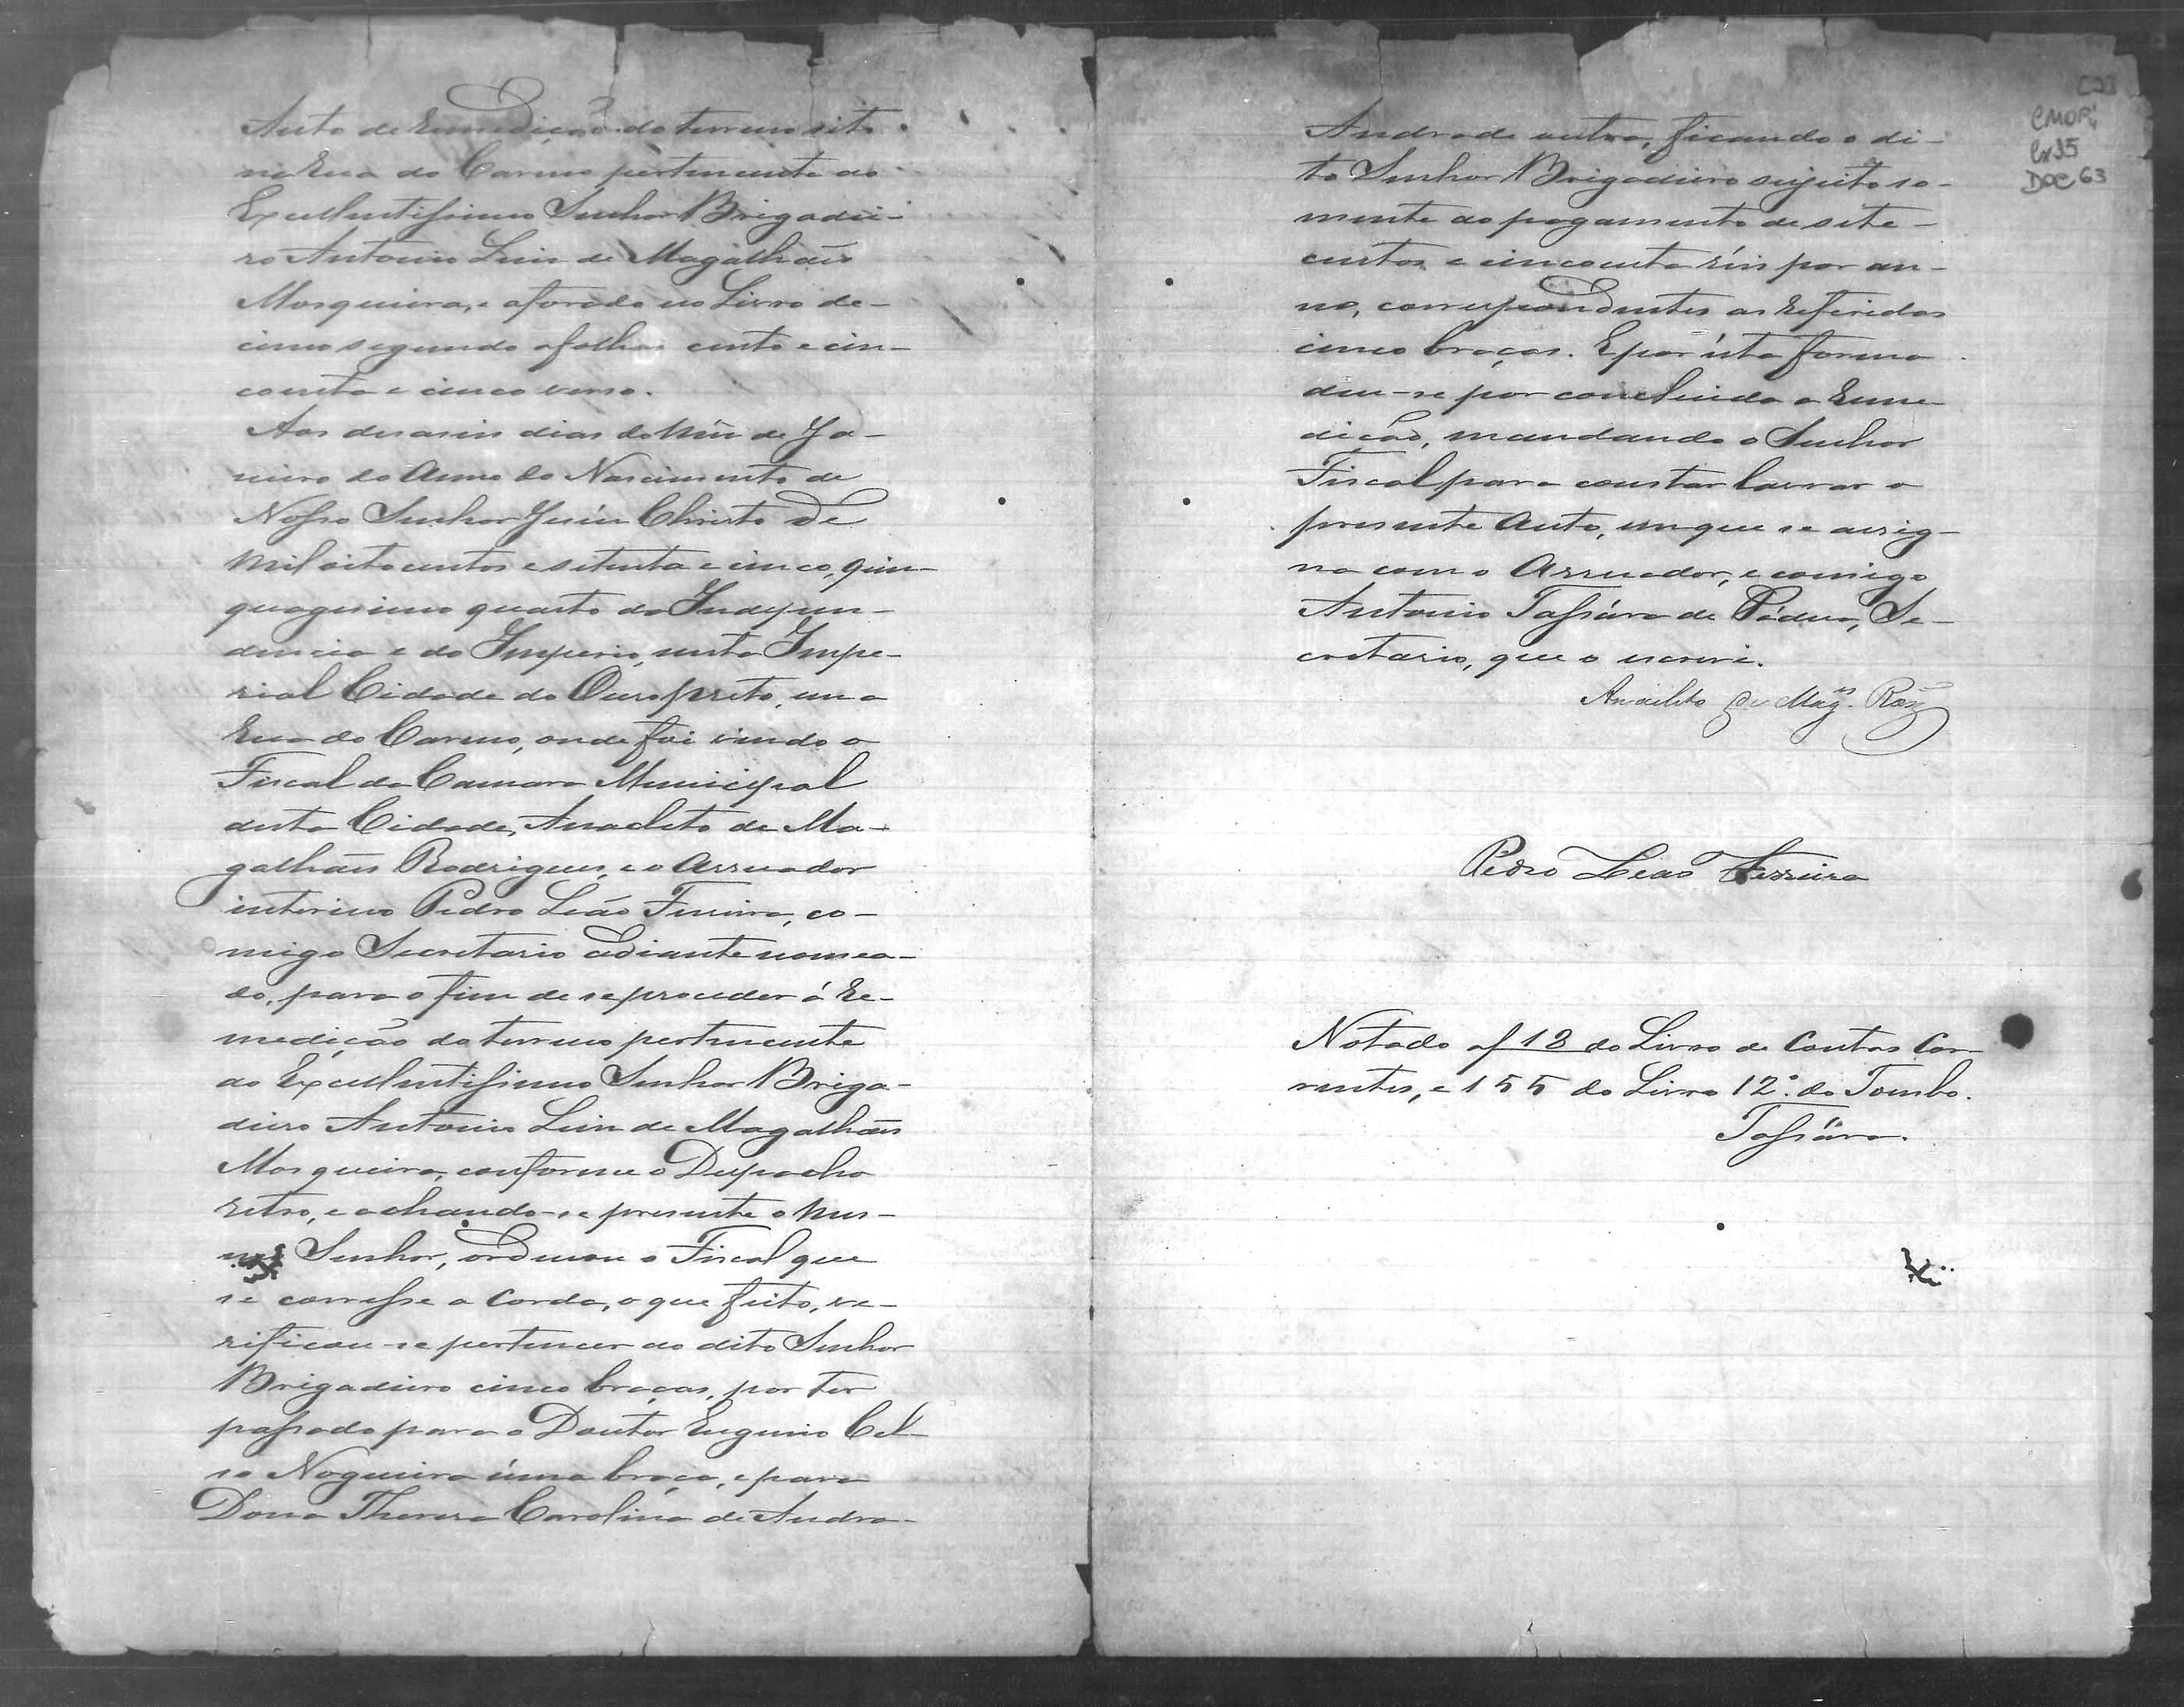 Auto de Remedição do terreno sito
na Rua do Carmo pertencente ao
Excellentissimo Senhor Brigadei-
ro Antonio Luis de Magalhães
Mosqueira, e aforado no Livro de-
cimo segundo a folhas cento e cin-
coenta e cinco verso.
Aos deaseis dias do Mês de Ja-
neiro do Anno do Nascimento de
Nosso Senhor Jesús Christo de
mil oitocentos e setenta e cinco, quin-
quagesimo quarto da Indepen-
dencia e do Imperio, nesta Impe-
rial Cidade do Ouro preto, em a
Rua do Carmo, onde foi vindo o
Fiscal da Camara Municipal
desta Cidade, Anacleto de Ma-
galhães Rodrigues, e o Arruador
interino Pedro Leão Ferreira, co-
migo Secretario adiante nomea-
do, para o fim de se proceder á Re-
medição do terreno pertencente
ao Excellentissimo Senhor Briga-
deiro Antonio Luis de Magalhães
Mosqueira, conforme o Despacho
retro, e achando-se presente o mes-
mo Senhor, ordenou o Fiscal que
se corresse a Corda, o que feito, ve-
rificou-se pertencer ao dito Senhor
Brigadeiro cinco braças, por ter
passado para o Doutor Eugenio Cel-
so Nogueira úma braça, e para
Dona Thereza Carolina de Andra-
Andrade outra, ficando o di-
to Senhor Brigadeiro sujeito so-
mente ao pagamento de sete-
centos e cincoenta réis por an-
no, correspondentes as referidas
cinco braças. E por ésta forma
deu-se por concluida a Reme-
dição, mandando o Senhor
Fiscal para constar lavrar o
presente Auto, em que se assig-
na com o Arruador, e comigo
Antonio Tassára de Pádua, Se-
cretario, que o escrevi.
Anacleto de Mag.es Roiz
Pedro Leão Ferreira
Notado a f 18 do Livro de Contas Cor-
rentes, e 155 do Livro 12.º do Tombo.
Tassára.
CMOP
Cx 35
Doc 63